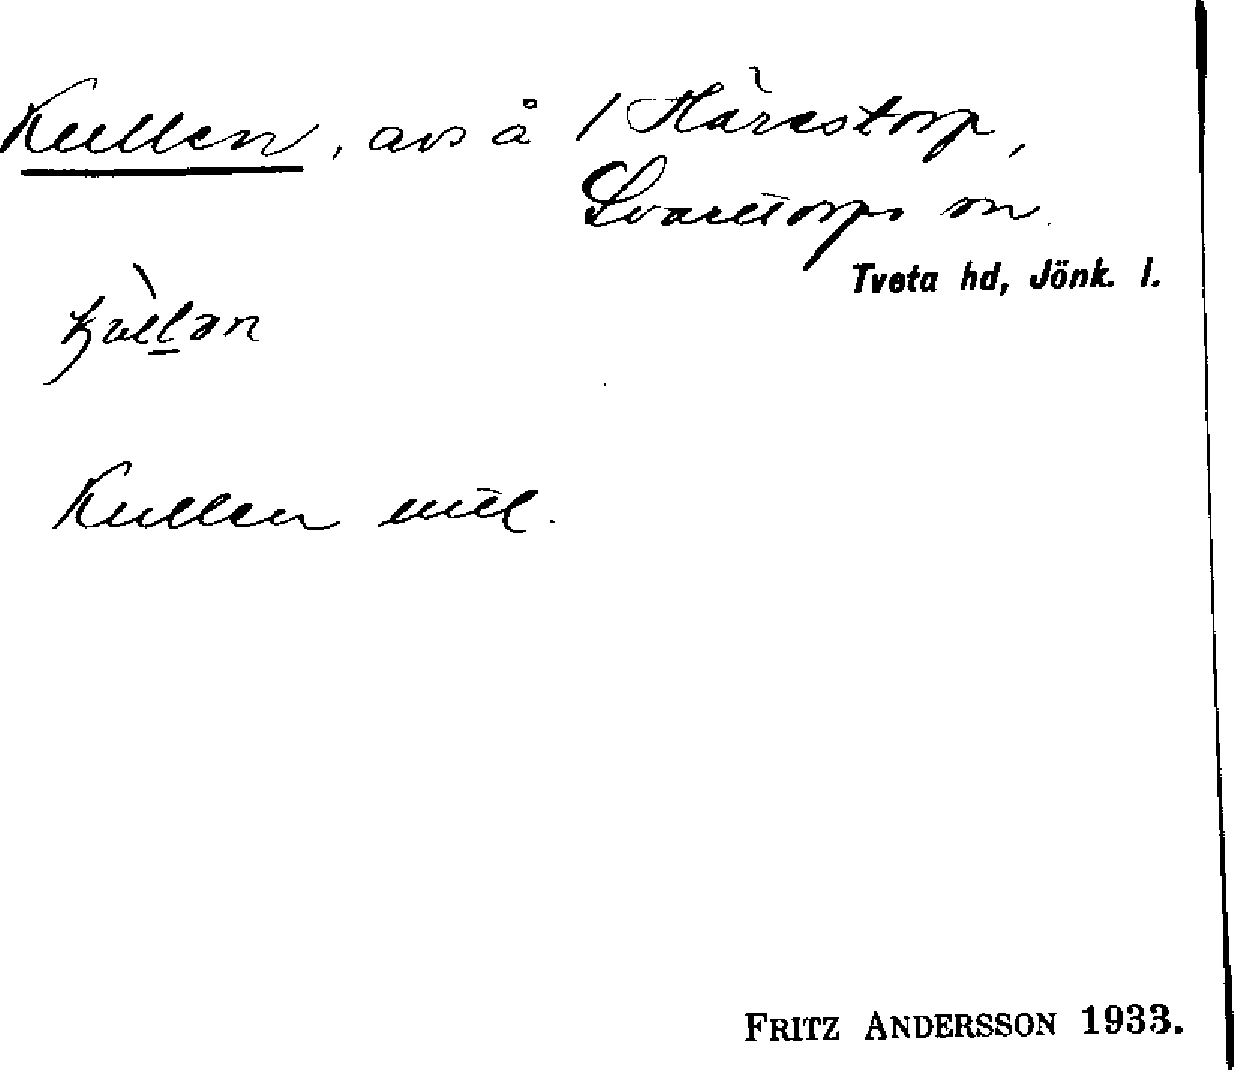 Kullen, avs å 1 Härestorp,
Svarttorps sn.
Tveta hd, Jönk. l.
Kullen
Kullen uttl.
FRITZ ANDERSSON 1933.